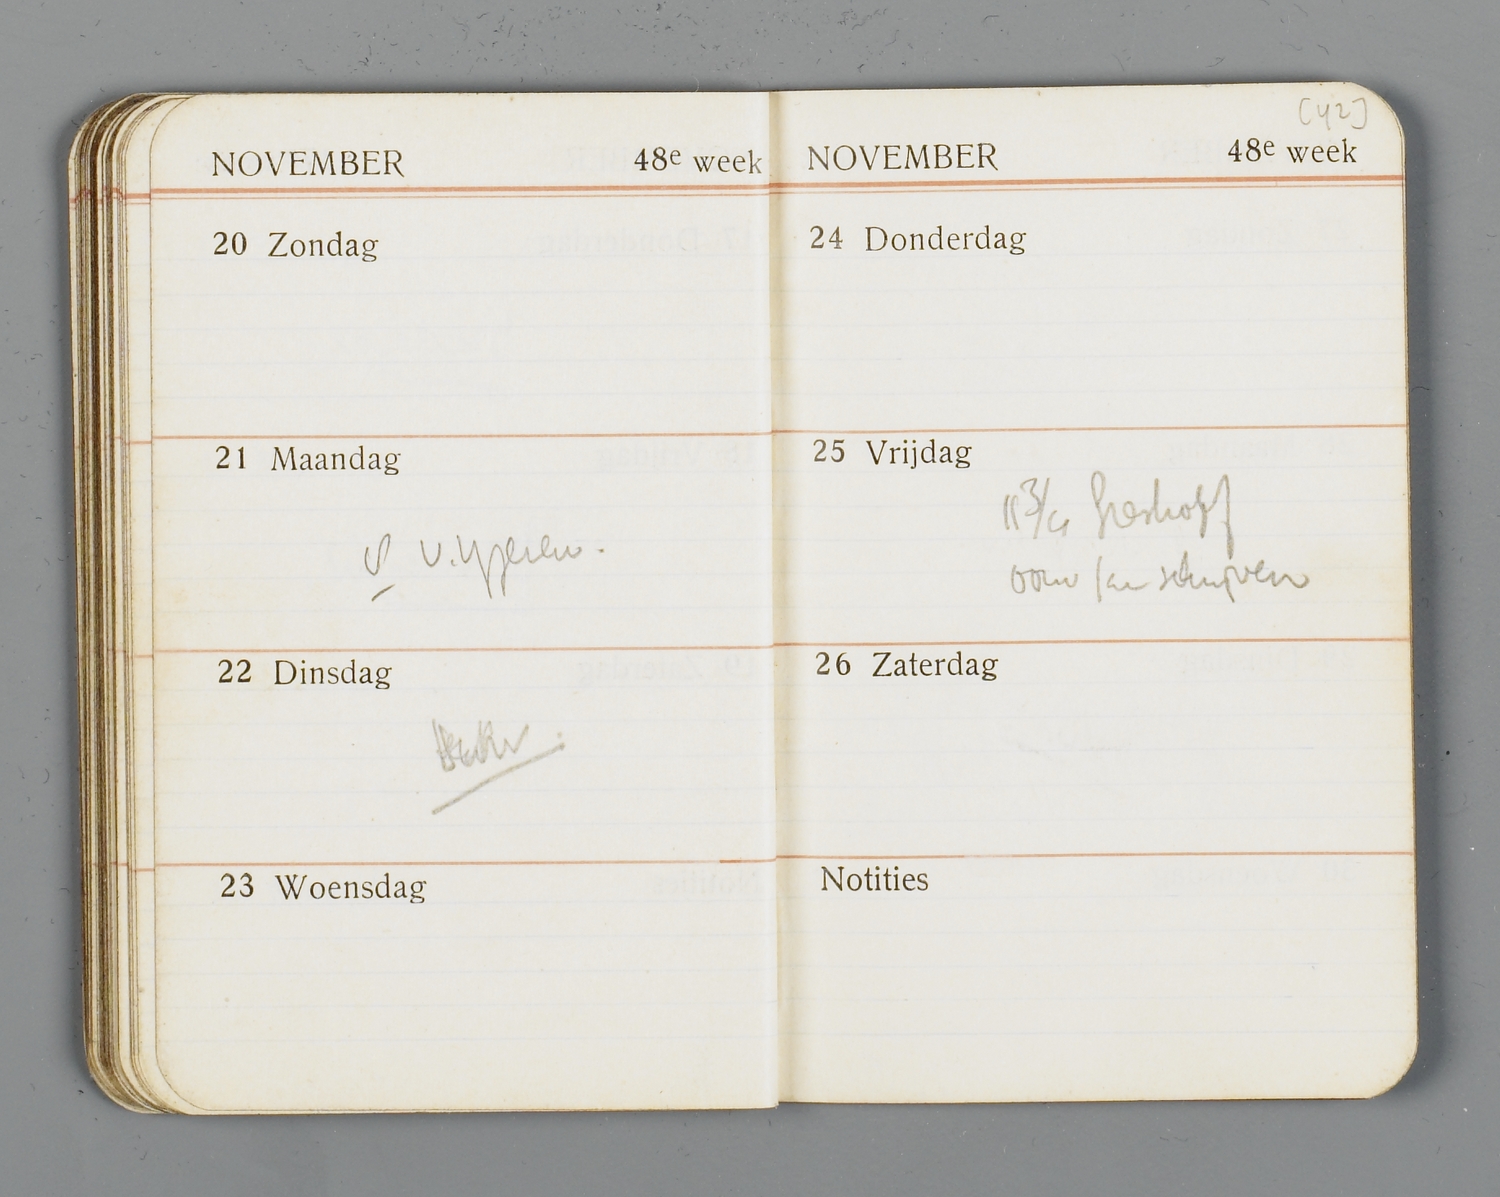 NOVEMBER 48e week
20 Zondag
21 Maandag
22 Dinsdag
23 Woensdag
[42]
NOVEMBER 48e week
24 Donderdag
25 Vrijdag
11 3/4
26 Zaterdag
Notities